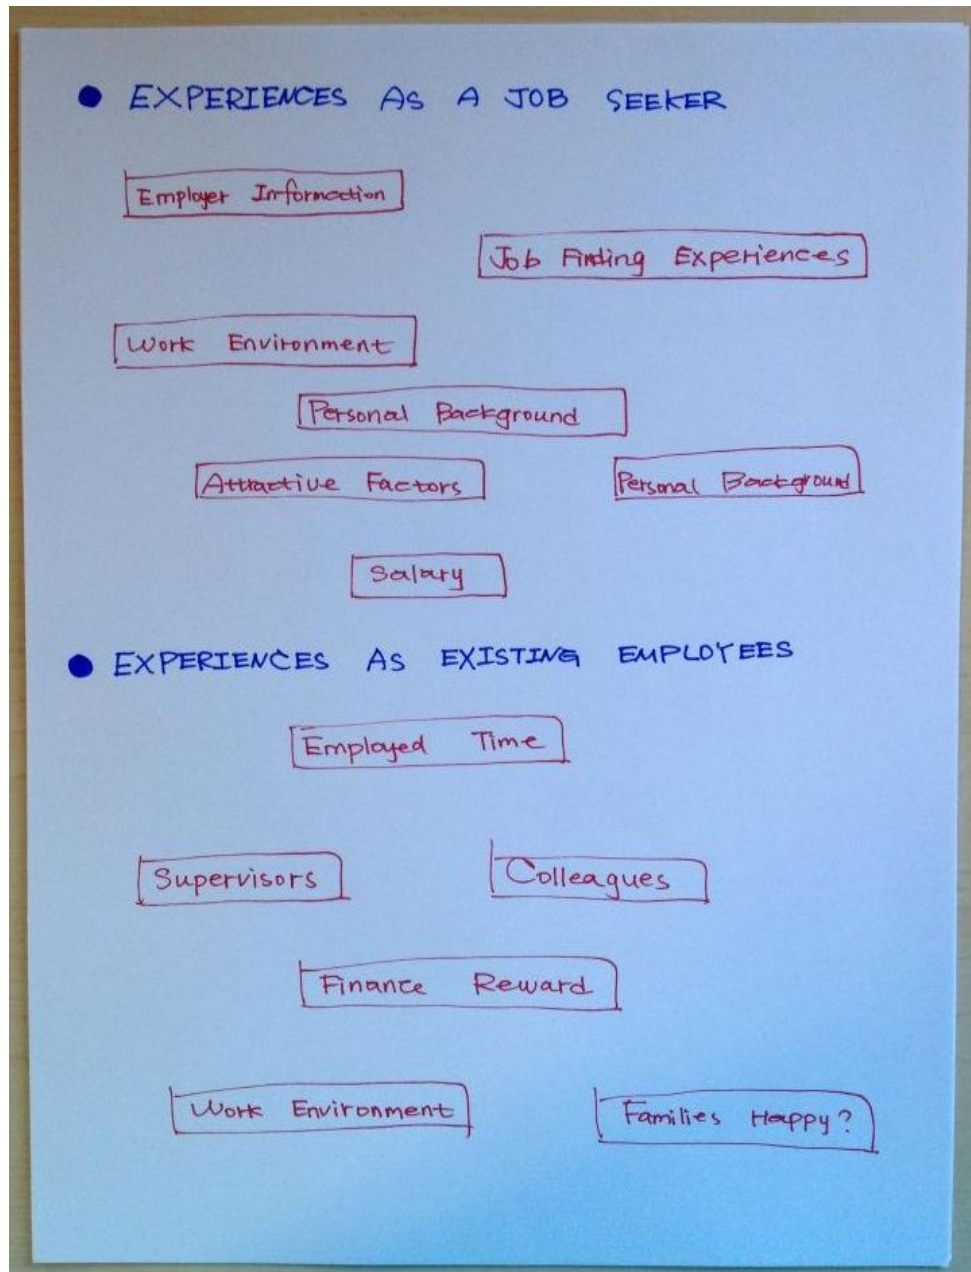 ● EXPERIENCES AS A JOB SEEKER
Employer Information
Job Finding Experiences
Work Environment
Personal Background
Attractive Factors Personal Background
Salary
● EXPERIENCES AS EXISTING EMPLOYEES
Employed Time
Supervisors Colleagues
Finance Reward
Work Environment Families Happy?